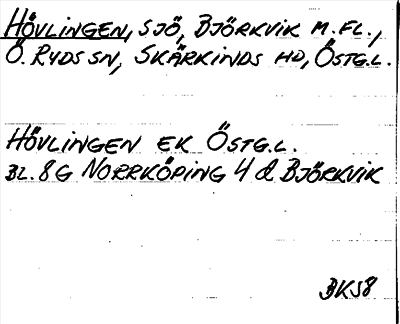 HÖVLINGEN, SJÖ, BJÖRKVIK M.FL.,
Ö. RYDS SN, SKÄRKINDS HD, ÖSTG.L.
HÖVLINGEN EK ÖSTG.L.
BL. 8G NORRKÖPING 4 d BJÖRKVIK
BKS8